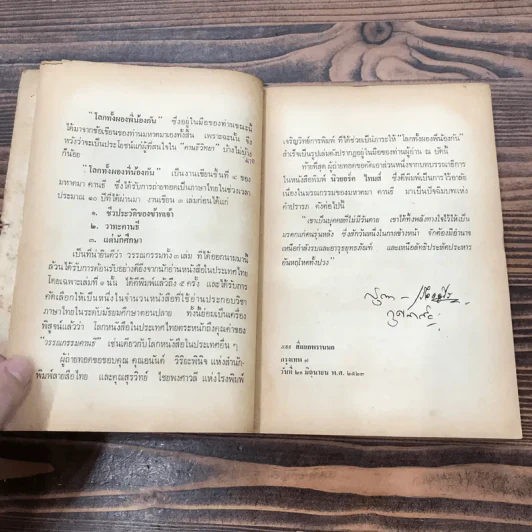 "โลกทั้งผองพี่น้องกัน" ซึ่งอยู่ในมือของท่านขณะนี้
ได้มาจากข้อเขียนของท่านมหาตมาเองทั้งสิ้น เพราะฉะนั้น จึง
หวังว่าจะเป็นประโยชน์แก่ผู้ที่สนใจใน "คานธีวิทยา" บ้างไม่มาก
ก็น้อย
"โลกทั้งผองพี่น้องกัน" เป็นงานเขียนชิ้นที่ ๔ ของ
มหาตมา คานธี ซึ่งได้รับการถ่ายทอดเป็นภาษาไทยในช่วงเวลา
ประมาณ ๑๐ ปีที่ได้ผ่านมา งานเขียน ๓ เล่มก่อนได้แก่
๑. ชีวประวัติของข้าพเจ้า
๒. วาทะคานธี
๓. แด่นักศึกษา
เป็นที่น่ายินดีว่า วรรณกรรมทั้ง ๓ เล่ม ที่ได้ออกถามมานี้
ล้วนได้รับการต้อนรับอย่างดียิ่งจากนักอ่านหนังสือในประเทศไทย
โดยเฉพาะเล่มที่ ๑ นั้น ได้ตีพิมพ์แล้วถึง ๕ ครั้ง และได้รับการ
คัดเลือกให้เป็นหนึ่งในจำนวนหนังสือที่ใช้อ่านประกอบวิชา
ภาษาไทยในระดับมัธยมศึกษาตอนปลาย ทั้งนี้ย่อมเป็นเครื่อง
พิสูจน์แล้วว่า โลกหนังสือในประเทศไทยตระหนักถึงคุณค่าของ
"วรรณกรรมคานธี" เช่นเดียวกับโลกหนังสือในประเทศอื่น ๆ
ผู้ถ่ายทอดขอขอบคุณ คุณอนันต์ วิริยะพินิจ แห่งสำนัก-
พิมพ์สายสือไทย และคุณสุรวิทย์ ไชยพงศาวลี แห่งโรงพิมพ์
เจริญวิทย์การพิมพ์ ที่ได้ช่วยเป็นภาระให้ "โลกทั้งผองพี่น้องกัน"
สำเร็จเป็นรูปเล่มดังปรากฏอยู่ในมือของท่านผู้อ่าน ณ บัดนี้
ท้ายที่สุด ผู้ถ่ายทอดขอคัดเอาส่วนหนึ่งจากบทบรรณาธิการ
ในหนังสือพิมพ์ นิวยอร์ค ไทมส์ ซึ่งตีพิมพ์เป็นการไว้อาลัย
เนื่องในมรณกรรมของมหาตมา คานธี มาเป็นปัจฉิมบทแห่ง
คำปรารภ ดังต่อไปนี้
"เขาเป็นบุคคลที่ไม่มีวันตาย เขาได้ทิ้งพลังทางใจไว้ให้เป็น
มรดกแก่คนรุ่นหลัง ซึ่งสักวันหนึ่งในกาลข้างหน้า จักต้องมีอำนาจ
เหนือกำลังรบและอาวุธยุทธภัณฑ์ และเหนือลัทธิประหัตประหาร
อันหฤโหดทั้งปวง"
สี่แยกพรานนก
กรุงเทพ ๗
วันที่ ๒๑ มิถุนายน พ.ศ. ๒๕๒๓